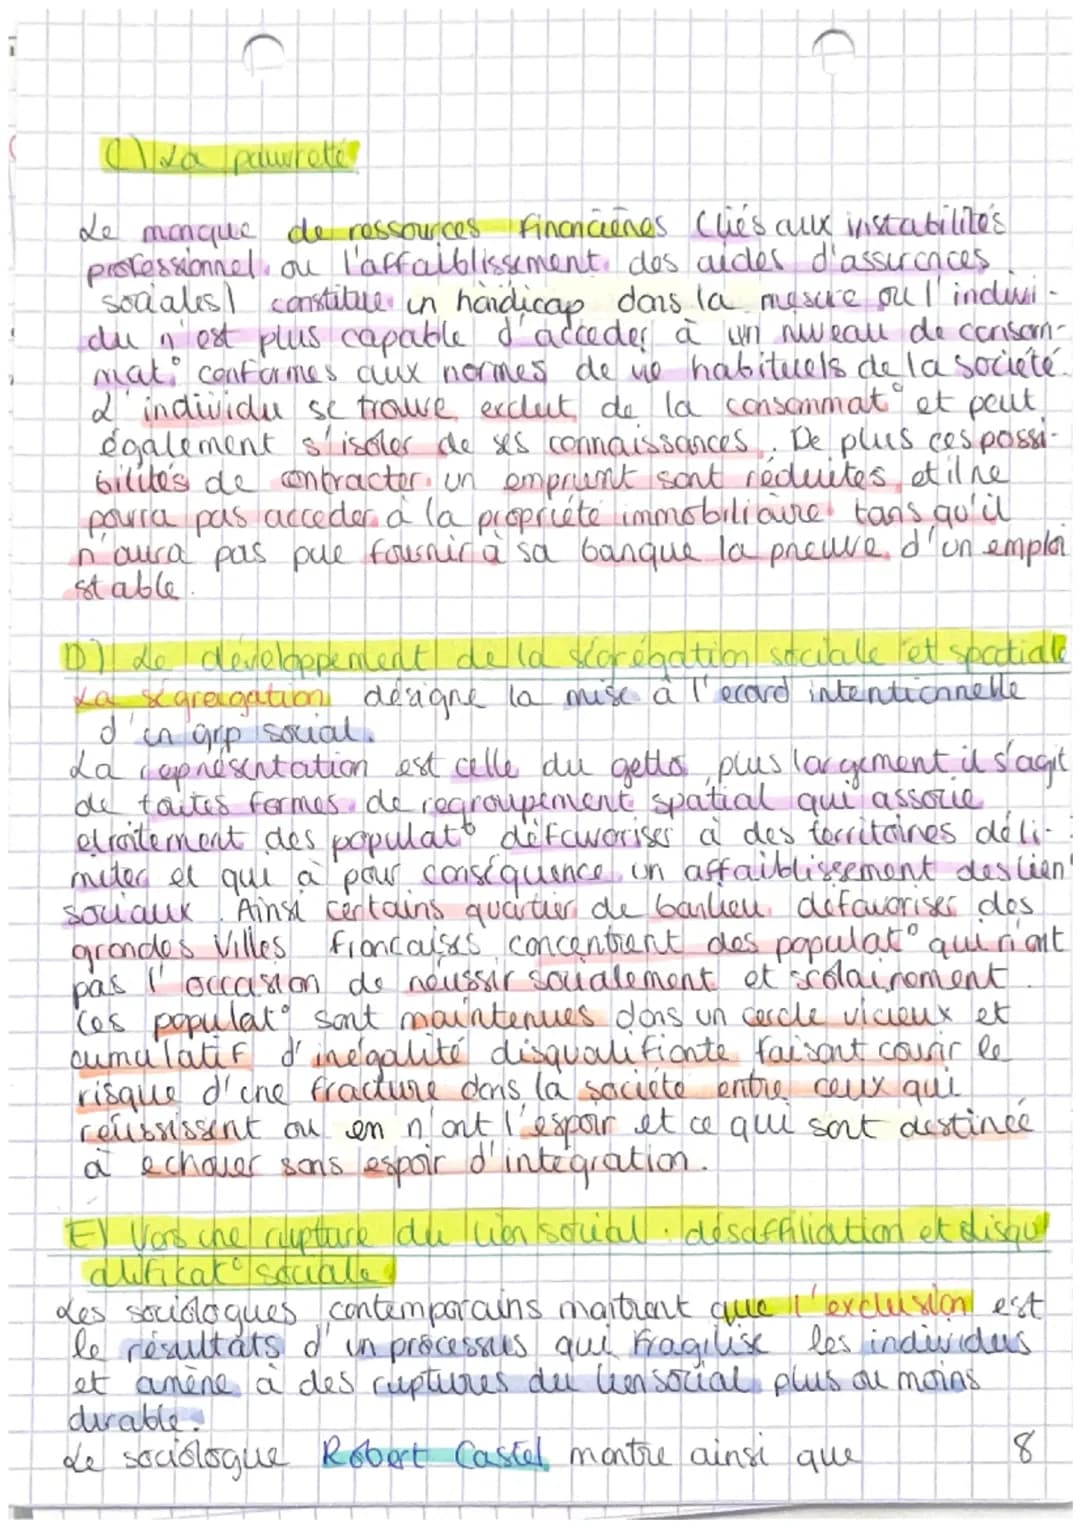 C) La pauvreté
Le manque de ressources financières (liés aux instabilités
professionnel ou l'affaiblissement des aides d'assurances
sociales) constitue un handicap dans la mesure ou l'indivi-
du n'est plus capable d'acceder à un niveau de consom-
mat° conformes aux normes de vie habituels de la société.
L'individu se trouve exclut de la consommat° et peut
également s'isoler de ses connaissances. De plus ces possi-
bilités de contracter un emprunt sont réduites et il ne
pourra pas acceder à la propriété immobilière tans qu'il
n'aura pas pue fournir à sa banque la preuve d'un emploi
stable.
D) Le développement de la ségrégation sociale et spatiale
La ségregation désigne la mise à l'ecard intentionnelle
d'un grp social.
La représentation est celle du getto, plus largement il s'agit
de toutes formes de regroupement spatial qui associe
etroitement des populat° défavoriser à des territoires déli-
miter et qui à pour conséquence un affaiblissement des lien
sociaux. Ainsi certains quartier de banlieu défavoriser des
grandes villes francaises concentrent des populat° qui n'ont
pas l'occasion de réussir socialement et scolairement.
Ces populat° sont maintenues dans un cercle vicieux et
cumulatif d'inégalité disqualifiante faisant courir le
risque d'une fracture dans la société entre ceux qui
réussissent ou en n'ont l'espoir et ce qui sont destinée
à echouer sans espoir d'intégration.
E) Vers une rupture du lien social : désaffiliation et disqu
alifikat° sociale
Les sociologues contemporains montrent que l'exclusion est
le résultats d'un processus qui fragilise les individus
et amène à des ruptures du lien social plus ou moins
durable.
Le sociologue Robert Castel montre ainsi que
8